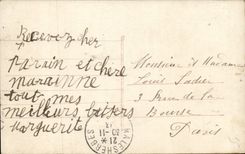 Recevez cher
Parain et chère
maraine
tout mes
meilleurs baisers
Marguerite
Monsieur et Madame
Louis
3 Rue de la
Bourse
Paris
MALESHERBES
30-11